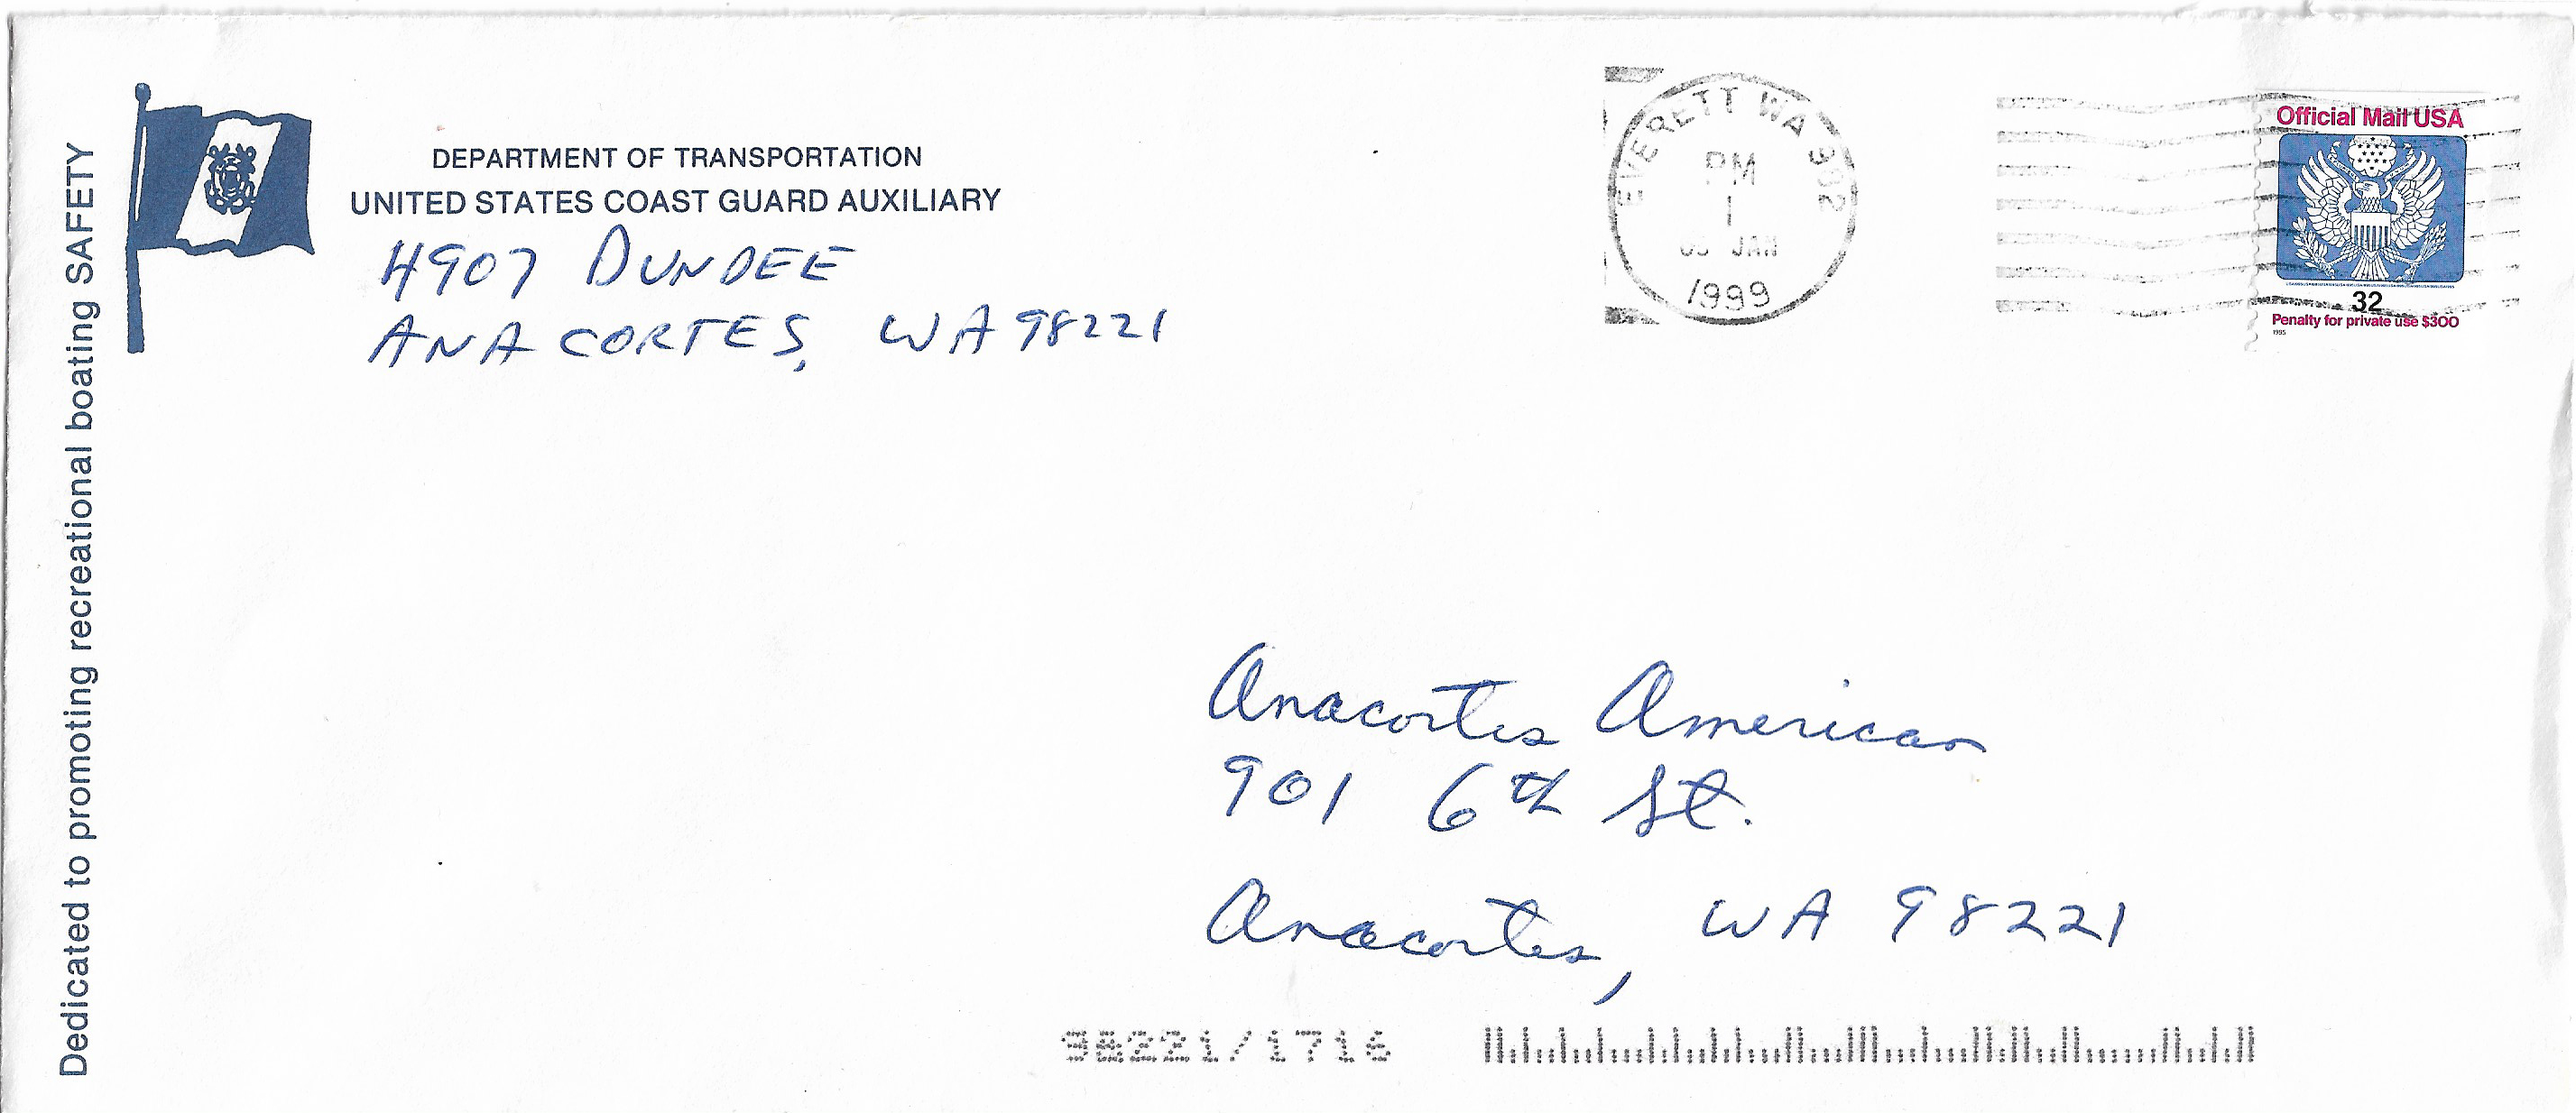 Dedicated to promoting recreational boating SAFETY
DEPARTMENT OF TRANSPORTATION
UNITED STATES COAST GUARD AUXILIARY
4907 DUNDEE
ANACORTES, WA 98221
EVERETT WA 982
PM
1
JAN
1999
Official Mail USA
32
Penalty for private use $300
1995
Anacortes American
901 6th St.
Anacortes, WA 98221
98221/1716